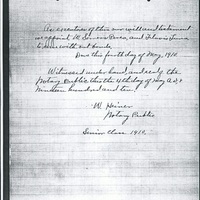 As executors of this our will and testament
we appoint R. Bros, and
to serve without bonds.
Done this fourth day of May, 1910.
Witnessed under hand, and seal of the
Notary Public this the 4th day of May A.D.
Nineteen hundred and ten.
W. Heiner
Notary Public
Senior Class 1910.